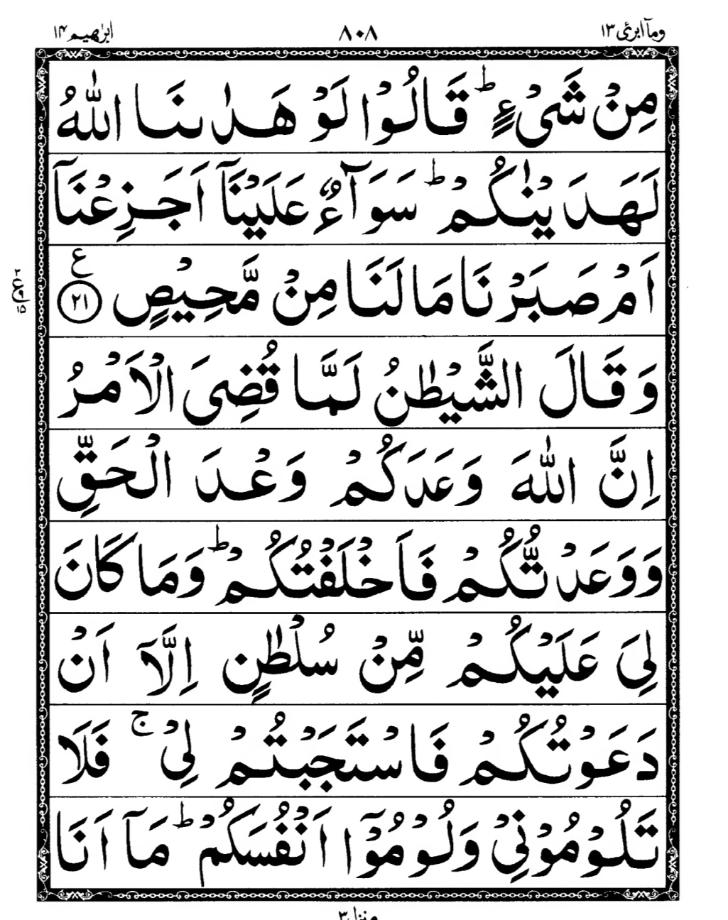 وماۤ ابرئ ۱۳ ۸۰۸ ابرٰهيم ۱۴
مِنْ شَیْءٍ ؕ قَالُوْا لَوْ هَدٰىنَا اللّٰهُ
لَهَدَیْنٰكُمْ ؕ سَوَآءٌ عَلَیْنَاۤ اَجَزِعْنَاۤ
اَمْ صَبَرْنَا مَا لَنَا مِنْ مَّحِیْصٍ ۟ ع ﴿۲۱﴾
وَقَالَ الشَّیْطٰنُ لَمَّا قُضِیَ الْاَمْرُ
اِنَّ اللّٰهَ وَعَدَكُمْ وَعْدَ الْحَقِّ
وَوَعَدْتُّكُمْ فَاَخْلَفْتُكُمْ ؕ وَمَا كَانَ
لِیَ عَلَیْكُمْ مِّنْ سُلْطٰنٍ اِلَّاۤ اَنْ
دَعَوْتُكُمْ فَاسْتَجَبْتُمْ لِیْ ۚ فَلَا
تَلُوْمُوْنِیْ وَلُوْمُوْۤا اَنْفُسَكُمْ ؕ مَاۤ اَنَا
منزل ۳